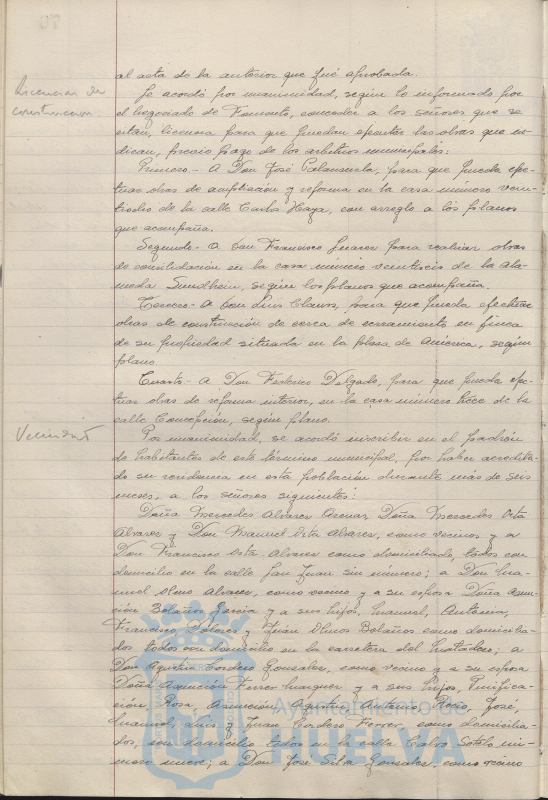 al acta de la anterior que fué aprobada.
Licencias de
construccion.
Se acordó por unanimidad, según lo informado por
el Negociado de Fomento, conceder a los señores que se
citan, licencia para que puedan efectuar las obras que in-
dican, previo pago de los arbitrios municipales:
Primero.- A Don José Palanzuela, para que pueda efec-
tuar obras de ampliación y reforma en la casa número vein-
tiocho de la calle Carlos Haya, con arreglo a los planos
que acompaña.
Segundo.- A Don Francisco Juarez para realizar obras
de consolidación en la casa número veintiseis de la Ala-
meda Sundheim, según los planos que acompaña.
Tercero.- A Don Luis Clauss, para que pueda efectuar
obras de construcción de cerca de cerramiento en finca
de su propiedad situada en la plaza de America, según
plano.
Cuarto.- A Don Federico Delgado, para que pueda efec-
tuar obras de reforma interior, en la casa número trece de la
calle Concepción, según plano.
Vecindad
Por unanimidad, se acordó inscribir en el padrón
de habitantes de este término municipal, por haber acredita-
do su residencia en esta población durante más de seis
meses, a los señores siguientes:
Doña Mercedes Alvarez Arenas, Doña Mercedes Orta
Alvarez y Don Manuel Orta Alvarez, como vecinos y a
Don Francisco Orta Alvarez como domiciliado, todos con
domicilio en la calle San Juan sin número; a Don Ma-
nuel Olmo Alvarez, como vecino y a su esposa Doña Asun-
ción Bolaños Garcia y a sus hijos, Manuel, Antonia,
Francisco, Dolores y Juan Olmos Bolaños como domicilia-
dos todos con domicilio en la carretera del Matadero; a
Don Agustin Cordero Gonzalez, como vecino y a su esposa
Doña Asunción Ferrer Marquez y a sus hijos, Purifica-
ción, Rosa, Asunción, Agustin, Antonio, Rocio, José,
Manuel, Luis y Juan Cordero Ferrer, como domicilia-
dos, con domicilio todos en la calle Calvo Sotelo nú-
mero nueve; a Don José Silva Gonzalez, como vecino
Ayuntamiento de
HUELVA